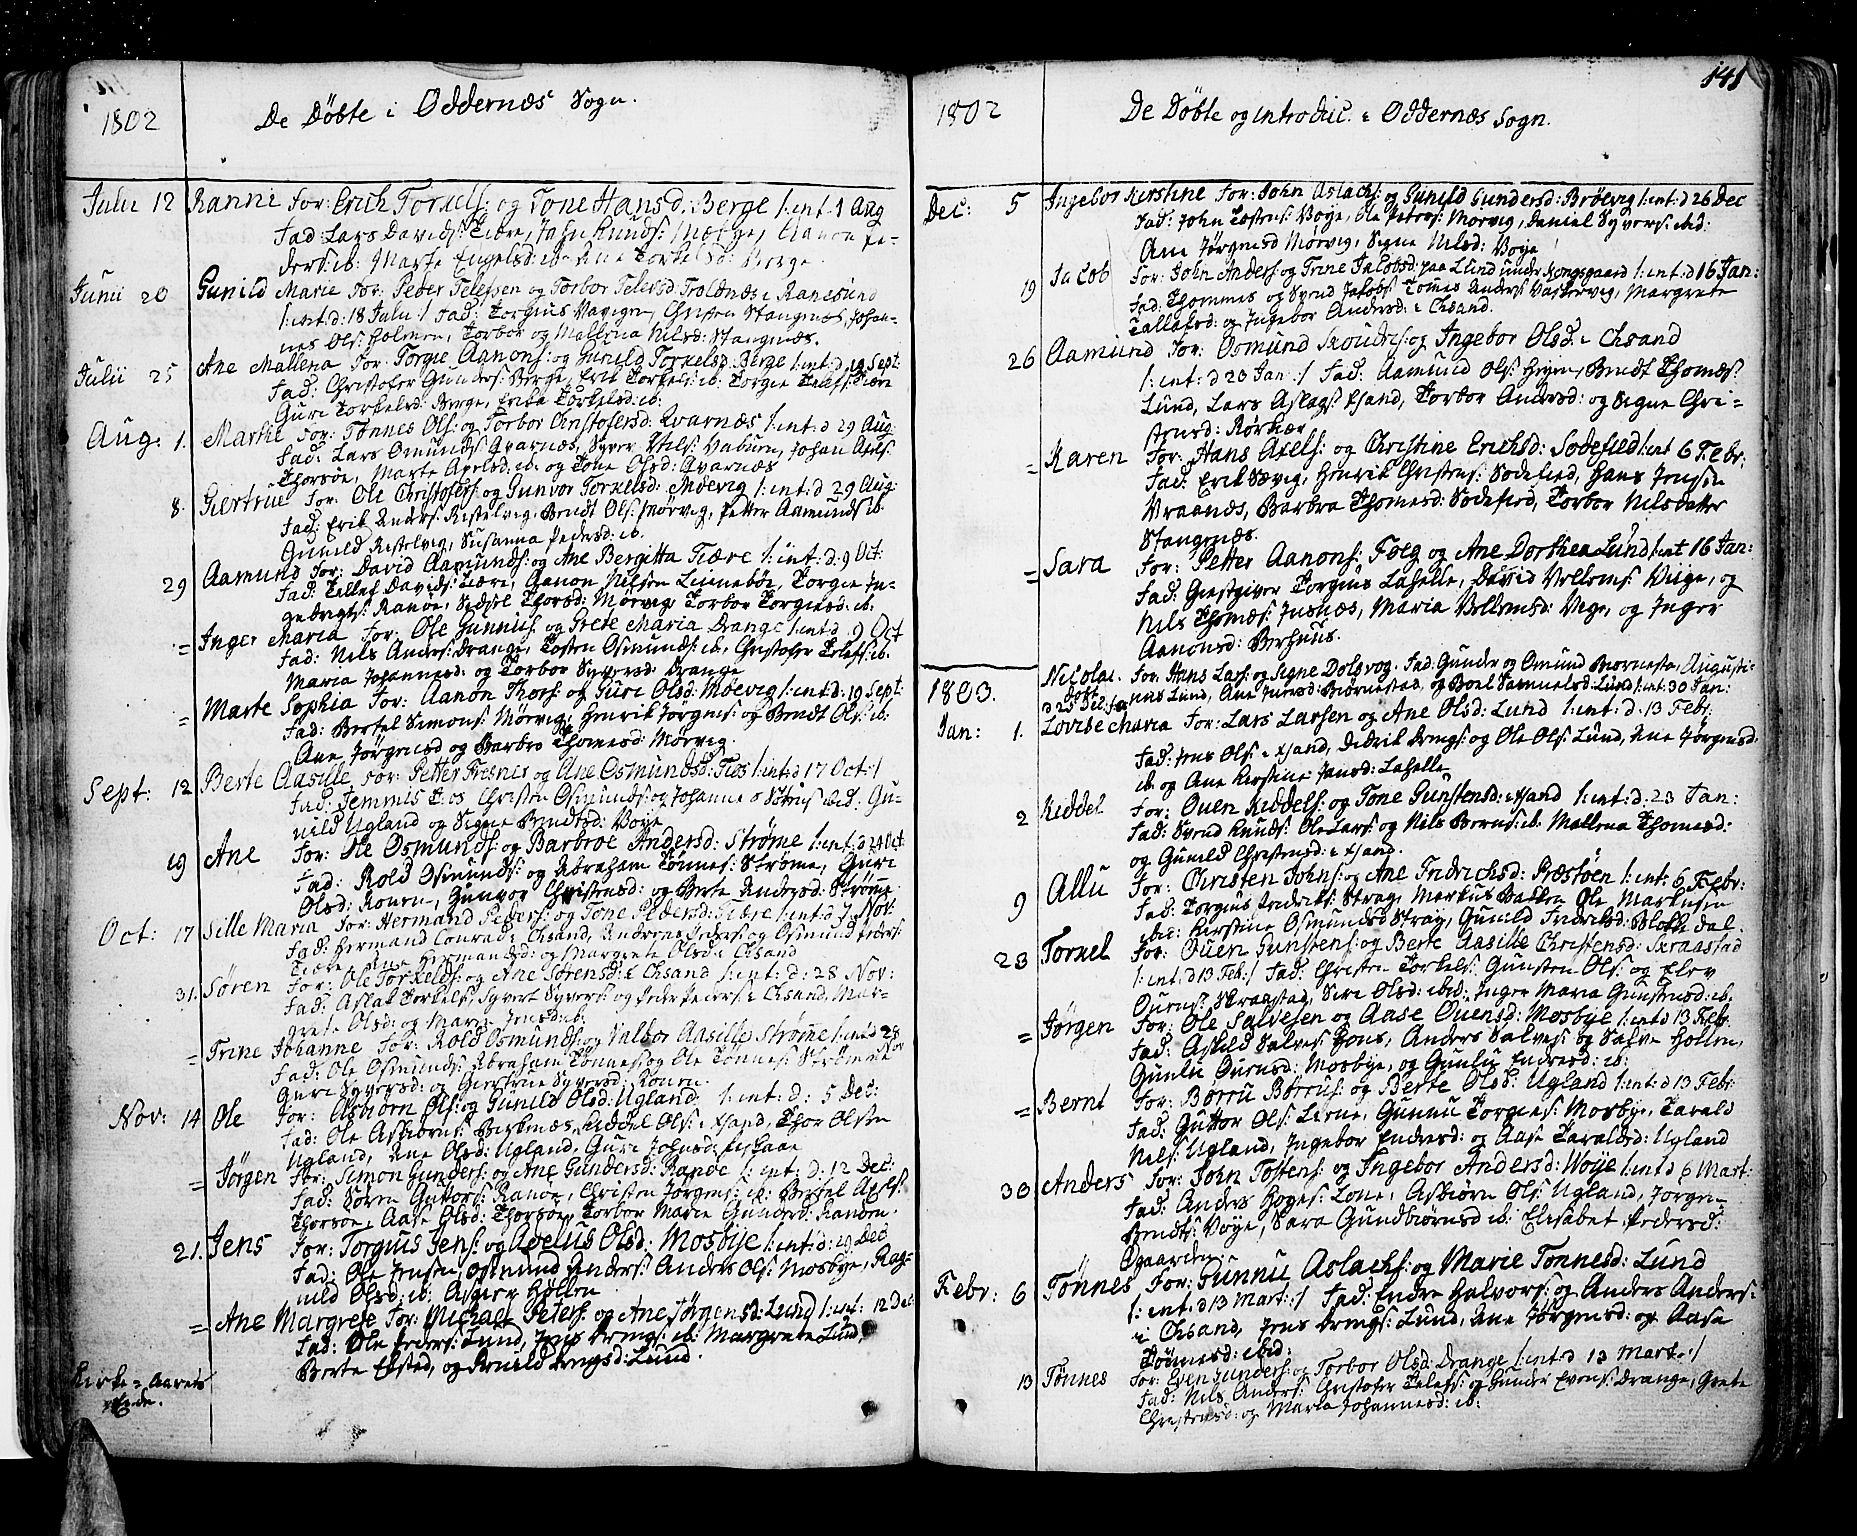 1802
De Döbte i Oddernæs Sogn.
Julii 12 Ranni For: Erich Torkels: og Tone Hansd: Berge /: int: 1 Aug
Fad: Lars Davids: Tiære, John Knuds: Aanon Pe-
ders: ib: Marte Engelsd: ib: Ane Torkelsd: Berge.
Junii 20 Gunild Marie For: Peder Telefsen og Torbor Telefsd Troldnæs i Ranesund
/: int: d: 18 Julii :/ Fad: Torgius Christen Stangnæs, Johan-
nes Ols: Holmen, Torbor og Mallena Nilsd: Stangnæs.
Julii 25 Ane Mallena For: Torgie Aanons: og Gunild Torkelsd: Berge /: int: d, 19 Sept:
Fad: Christofer Gunders: Berge, Erik Torkels: ib: Torgie Telefs: Tiære
Guri Torkelsd: Berge, Torkelsd: ib:
Aug: 1. Marthe For: Tönnes Ols: og Torbor Christofersd: Kvarnæs /: int: d 29 Aug:
Fad: Lars Omunds: Qvarnæs, Syver Nils: Vabuen, Johan Axels:
Thorsöe, Marte Axelsd: ib. og Tone Olsd: Qvarnæs
8. Giertrue For: Ole Christofers: og Gunvor Torkelsd: Moevig /: int: d 29 Aug:
Fad: Erik Anders: Kestelvig, Bendt Ols: Mörvig, Petter Aamunds: ib.
Gunild Kestelvig, Susanna Pedersd: ib.
29 Aamund For: David Aamunds: og Ane Bergitta Tiære /: int: d: 9 Oct:
Fad: Tellef Davids: Tiære, Aanon Nilsen Linneböe, Torgie In-
gebrigts: Ranöe, Sidsel Thorsd: Mörvig, Torbor Torgiesd: ib:
= Inger Maria For: Ole Gunnuls: og Grete Maria Drange /: int: d 9 Oct
Fad: Nils Anders: Drange, Tosten Osmunds: ib, Christofer Telefs: ib.
Maria Johannesd: og Torbor Syversd: Drange
= Marte Sophia For: Aanon Thors: og Guri Olsd: Moevig /: int: d: 19 Sept:
Fad: Bertel Simons: Mörvig, Henrik Jörgens: og Bendt Ols: ib:
Ane Jörgensd og Barbro Thomesd: Mörvig.
Sept: 12 Berte Aasille For: Petter Fresner og Ane Osmundsd: Tios /: int: d 17 Oct :/
Fad: Jemmis Tios Christen Osmunds: og Johannes ibid: Gu-
nild Ugland og Signe Bendtsd: Voye
19 Ane For: Ole Osmunds: og Barbroe Andersd: Ströme /: int: d 24 Oct
Fad: Rold Osmunds: og Abraham Tönnes: Ströme, Guri
Olsd: Ronen, Gunvor Christensd: og Berte Andersd: Ströme.
Oct: 17 Sille Maria For: Hermand Peders: og Tone Pedersd: Tiære /: int: d 7 Nov:
Fad: Hermand Conrad i Chsand, Anders: og Osmund Peders:
Tiære, Ane Hermandsd: og Margrete Olsd: i Chsand
31. Sören For: Ole Torkelds: og Ane Sörensd: i Chsand /: int: d: 28 Nov:
Fad: Aslak Torkels, Syvert Syvers: og Peder Peders: i Chsand, Mar-
grete Olsd: og Marie Jensd: ib:
= Trine Johanne For: Rold Osmunds: og Valbor Aasille Ströme /: int: d 28
Nov
Fad: Ole Osmunds: Abraham Tönnes: og Ole Tönnes: Ströme
Guri Syversd: og Giertrue Syversd: Ronen.
Nov: 14 Ole For: Asbiörn Ols: og Gunild Olsd: Ugland /: int: d: 5 Dec:
Fad: Ole Asbiörns: Birkenæs, Keddel Ols: i Xsand, Thor Olsen
Ugland, Ane Olsd: Ugland, Guri Johnsd: Eeskaae
= Jörgen For: Simon Gunders: og Ane Gundersd: Ranöe /: int: d: 12 Dec:
Fad: Sören Guttors: Ranöe, Christen Jörgens: ib: Bertel Axels:
Thorsöe, Aase Olsd: Thorsöe, Torbor Marie Gundersd: Randöe.
21. Jens For: Torgius Jens: og Axelus Olsd: Mosbye /: int: d: 19 Dec
Fad: Ole Jensen, Osmund Anders: Anders Ols: Mosbye, Rag-
nild Olsd: ib: Asgier Höllen
= Ane Margrete For: Michael Peters: og Ane Jörgensd: Lund /: int: 12 Dec:
Fad: Ole Peders: Lund, Jens ib: Margrete Lund,
Berte Efsted, og Lund.
Kirke = Aarets
Ende.
141
1802
De Döbte og introduc. i Oddernæs Sogn.
Dec: 5 Ingebor Kirstine For: John Aslachs: og Gunild Gundersd: Bröevig /: int: d 26 Dec
Fad: John Tostens: Voye, Ole Peters: Mörvig, Daniel Syvers: ibid:
Ane Jörgensd Mörvig, Signe Nilsd: Voye
19 Jacob For: John Anders: og Trine Jacobsd: paa Lund under Kongsgaard /: int: d 16 Jan:
Fad: Thommes og Svend Jakobs: Tomes Anders: Margrete
Tallaksd: og Ingebor Andersd: i Chsand.
26 Aamund For: Osmund og Ingebor Olsd: i Chsand
/: int: d 23 Jan :/ Fad: Aamund Ols: Bendt Thomes:
Lund, Lars Aslags: Xsand, Torbor Andersd: og Signe Chri-
stensd: Rörkiær
= Karen For: Hans Axels: og Christine Erichsd: Sodefied /: int 6 Febr:
Fad: Erik Sævig, Henrik Christens: Sodefied, Hans Jensen
Vraanæs, Barbra Thomesd: Sodefied, Torbor Nilsdatter
Stangenæs.
= Sara For: Petter Aanons: Foeg og Ane Dorthea Lund /: int 16 Jan:
Fad: Giestgiver Torgius Lahelle, David Vellems: Viige, og
Nils Thomæs: Jusnæs, Maria Vellemsd: Vige, og Inger
Aanonsd: Berhuus.
Nicolai For: Hans Lars: og Signe Dolsvog. Fad: Gunder og Omund Biornestad, Augusti-
döbt
d 25 nus Lund, Ane Biörnestad, og Boel Samuelsd: Lund /: int: 30 Jan:
1803.
Jan: 1. Lovise Maria For: Lars Larsen og Ane Olsd: Lund /: int: d: 13 Febr:
Fad: Jens Ols: i Xsand, Didrik og Ole Ols: Lund, Ane Jörgensd:
ib: og Ane Kirstine Jansd: Lahelle
2 Keddel For: Ouen Keddels: og Tone Gunstensd: i Xsand /: int: d: 23 Jan:
Fad: Svend Knuds: Ole Lars: og Nils Berns: ib. Mallena Thomesd:
og Gunild Christensd: i Xsand.
9 Allu For: Christen Johns: og Ane Fredrichsd: Præstöen /: int: 6 Febr:
Fad: Torgius Fredriks: Stray, Markus Bakken Ole Markusen
ibid: Kirstine Osmundsd: Stray, Gunild Fredriksd: Blokkedal.
23 Torkel For: Ouen Gunstens: og Berte Aasille Christensd: Skraastad
/: int: d 13 Feb: :/ Fad: Christen Torkels: Gunsten Ols: og Elev
Ouens: Skraastad, Siri Olsd: ibid: Inger Maria Gunstensd: ib.
= Jörgen For: Ole Salvesen og Aase Ouensd: Mosbye /: int: d 13 Feb:
Fad: Askild Salves: Höns, Anders Salves: og Salve Höllen,
Gunlu Ouensd: Mosbye, og Gunlu Endresd: ib:
= Bernt For: Börru Börrus: og Berte Olsd: Ugland /: int: d 13 Febr
Fad: Guttor Ols: Lerne, Gunnu Torgies: Mosbye, Tarald
Nils: Ugland, Ingebor Endresd: og Aase Taraldsd: Ugland
30 Anders For: John Tostens: og Ingebor Andersd: Woye /: int: d 6 Mart:
Fad: Anders Hoges: Lone, Asbiörn Ols: Ugland, Jörgen
Bendts: Voye, Sara Gundbiörnsd ib: Elisabet Pedersd:
Egaarden
Febr: 6 Tönnes For: Gunnu Aslachs: og Marie Tonnesd: Lund
/: int: d 13 Mart: :/ Fad: Endre Halvors: og Anders Anders:
i Chsand, Jens Lund, Ane Jörgensd: og Aase
Tönnesd: ibid:
13 Tönnes For: Even Gunders: og Torbor Olsd: Drange /: int: d 13 Mart: :/
Fad: Nils Anders: Christofer Telefs: og Gunder Evens: Drange, Grete
Christensd: og Maria Johannesd: ib: